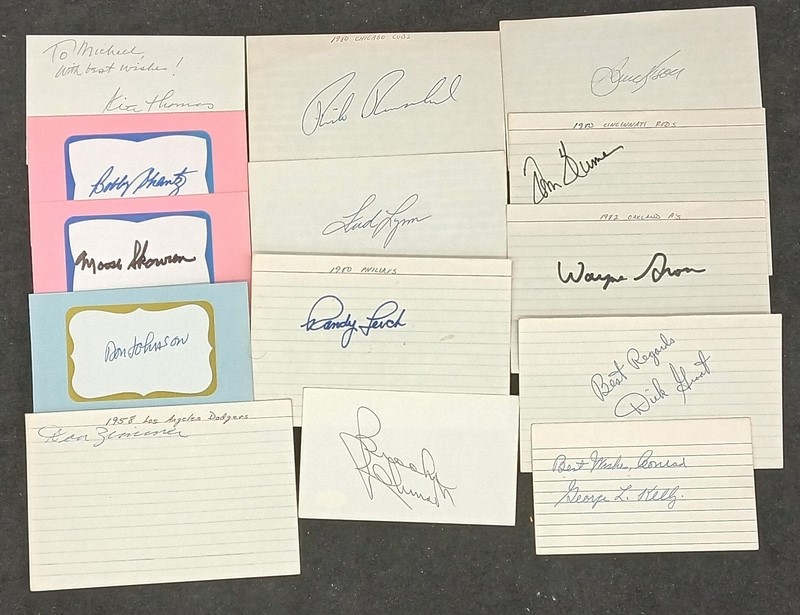 To Michael,
With best wishes!
Kite Thomas
Bobby Shantz
Moose Skowron
Don Johnson
1958 Los Angeles Dodgers
Don Zimmer
1980 CHICAGO CUBS
Rick Reuschel
Fred Lynn
1980 PHILLIES
Randy Lerch
1980 CINCINNATI REDS
Tom Hume
1982 OAKLAND A's
Wayne Gross
Best Regards
Dick
Best Wishes, Conrad
George L. Kelly